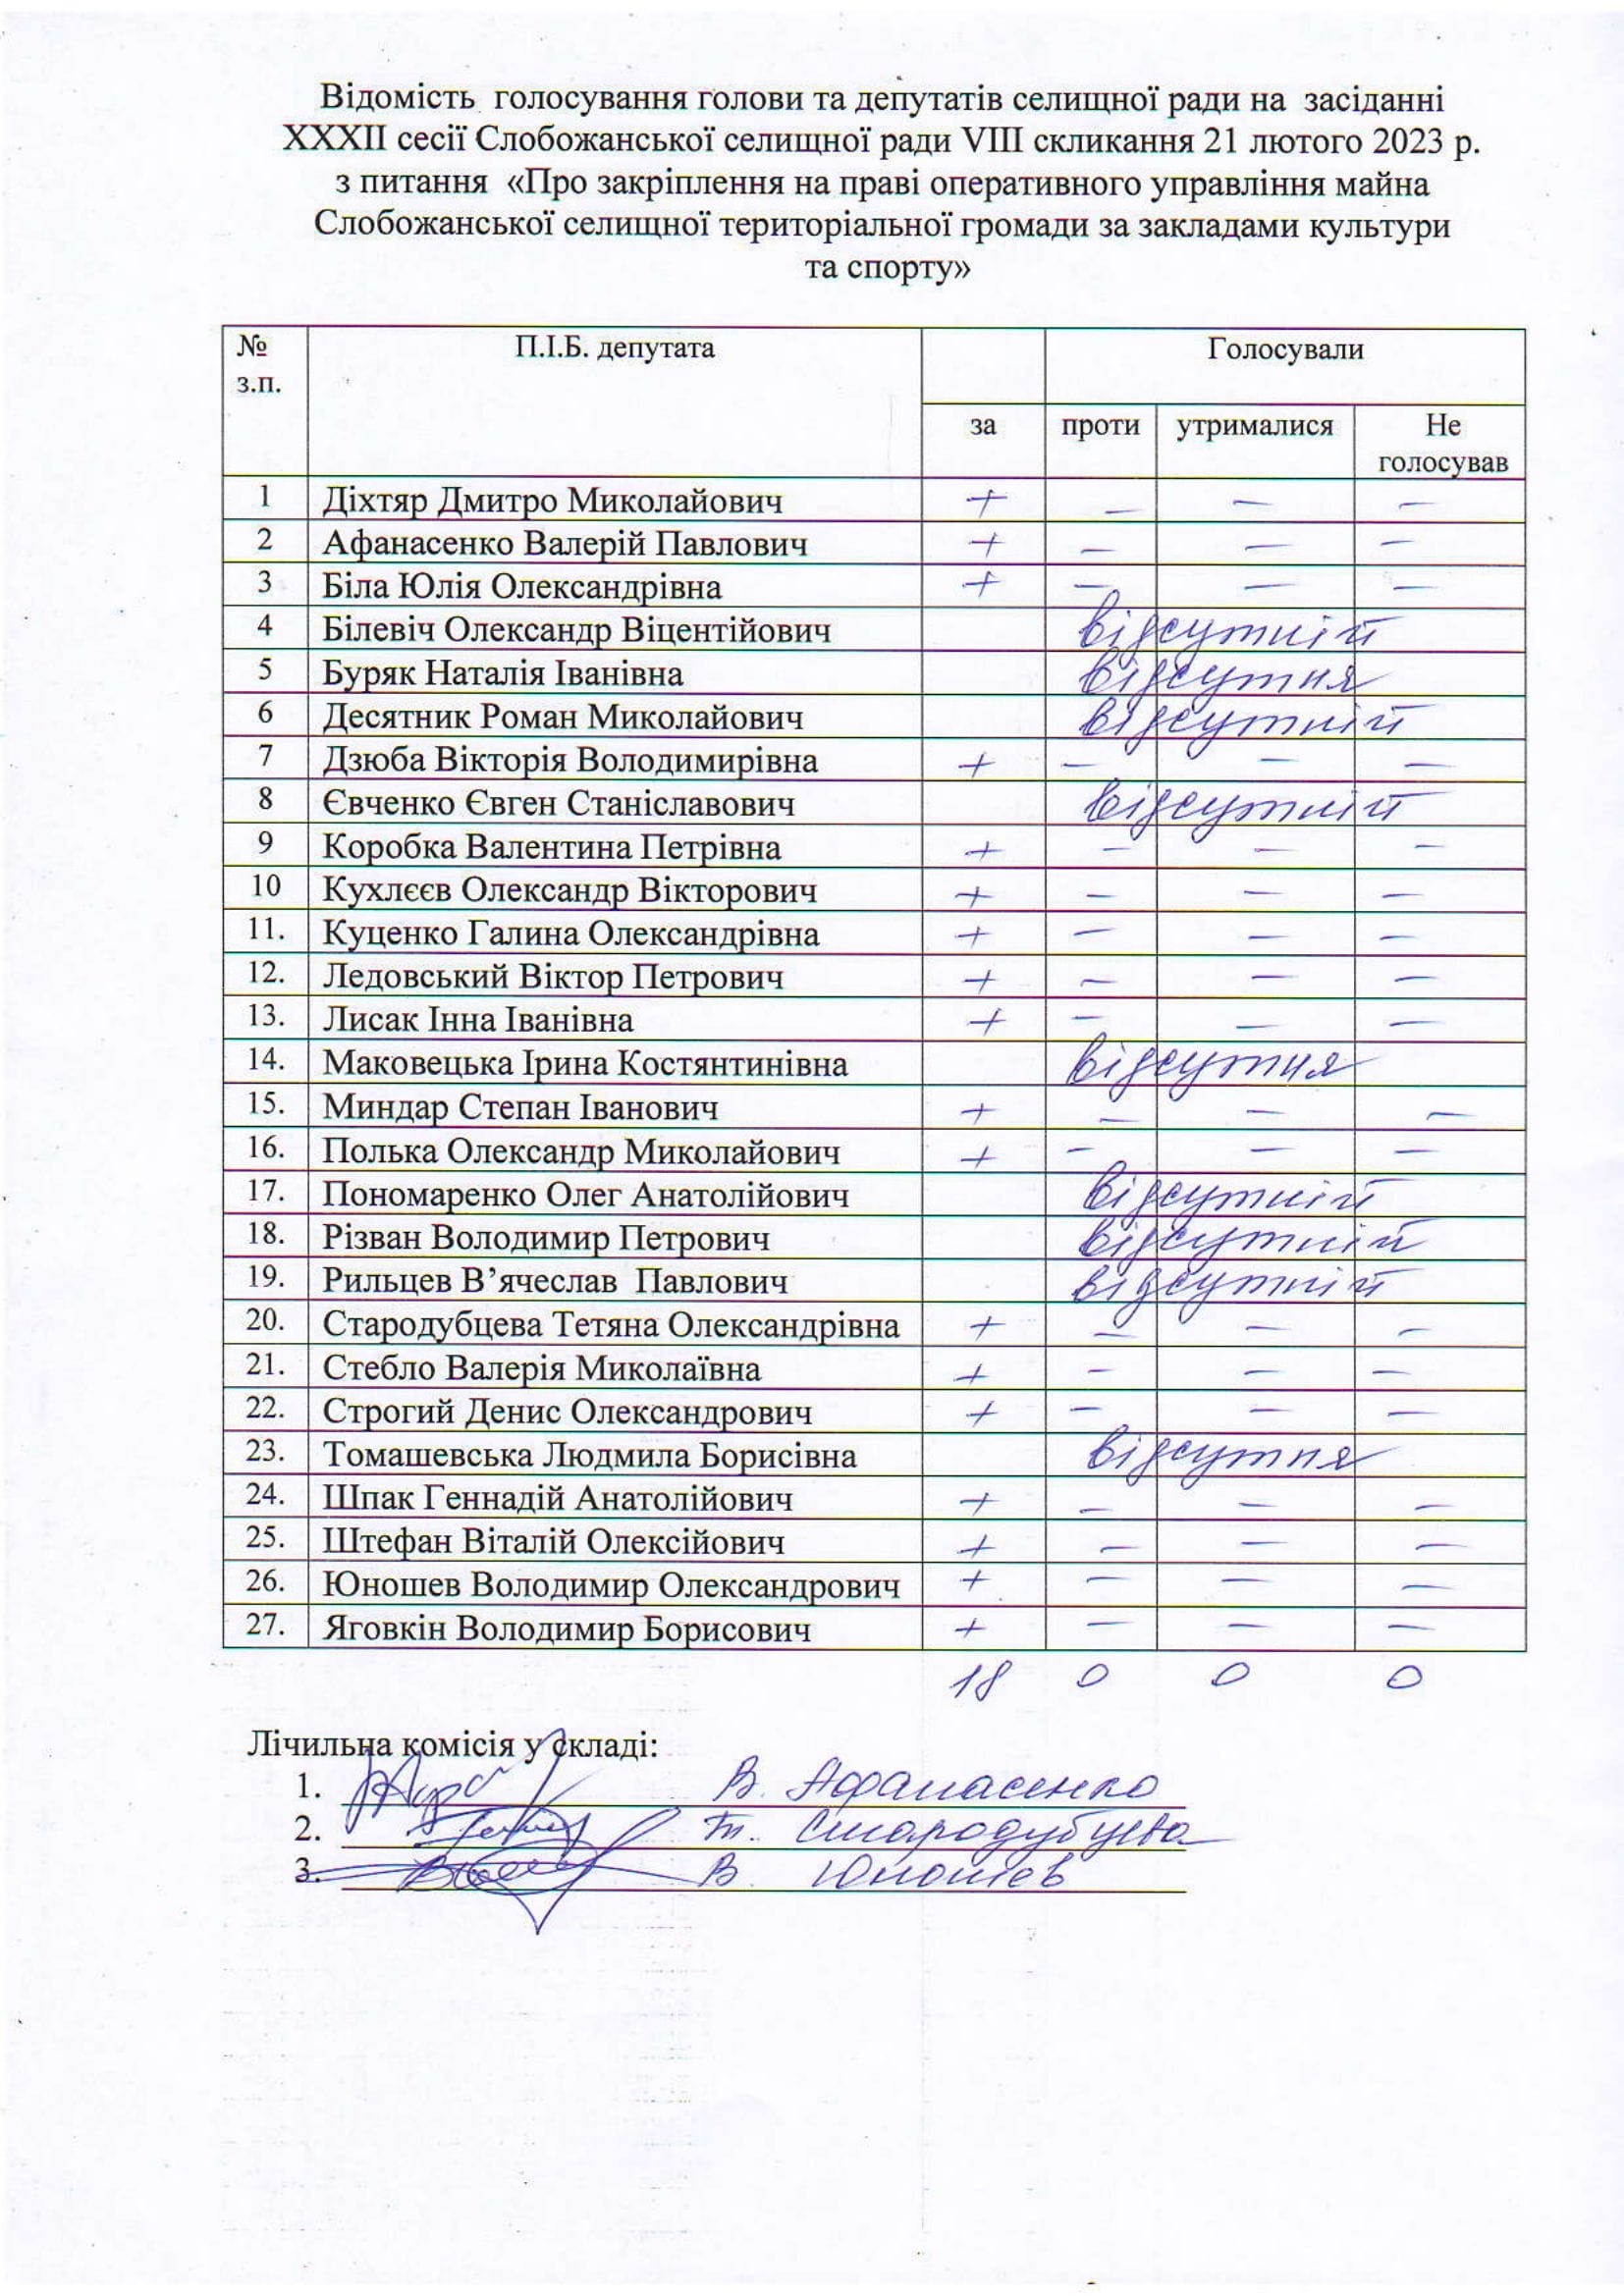 Відомість голосування голови та депутатів селищної ради на засіданні
XXXII сесії Слобожанської селищної ради VIII скликання 21 лютого 2023 р.
з питання «Про закріплення на праві оперативного управління майна
Слобожанської селищної територіальної громади за закладами культури
та спорту»
№ П.І.Б. депутата Голосували
з.п.
за проти утрималися Не
голосував
1 Діхтяр Дмитро Миколайович + — — —
2 Афанасенко Валерій Павлович + — — —
3 Біла Юлія Олександрівна + — — —
4 Білевіч Олександр Віцентійович відсутній
5 Буряк Наталія Іванівна відсутня
6 Десятник Роман Миколайович відсутній
7 Дзюба Вікторія Володимирівна + — — —
8 Євченко Євген Станіславович відсутній
9 Коробка Валентина Петрівна + — — —
10 Кухлєєв Олександр Вікторович + — — —
11. Куценко Галина Олександрівна + — — —
12. Ледовський Віктор Петрович + — — —
13. Лисак Інна Іванівна + — — —
14. Маковецька Ірина Костянтинівна відсутня
15. Миндар Степан Іванович + — — —
16. Полька Олександр Миколайович + — — —
17. Пономаренко Олег Анатолійович відсутній
18. Різван Володимир Петрович відсутній
19. Рильцев В’ячеслав Павлович відсутній
20. Стародубцева Тетяна Олександрівна + — — —
21. Стебло Валерія Миколаївна + — — —
22. Строгий Денис Олександрович + — — —
23. Томашевська Людмила Борисівна відсутня
24. Шпак Геннадій Анатолійович + — — —
25. Штефан Віталій Олексійович + — — —
26. Юношев Володимир Олександрович + — — —
27. Яговкін Володимир Борисович + — — —
18 0 0 0
Лічильна комісія у складі:
1. В. Афанасенко
2. Т. Стародубцева
3. В. Юношев